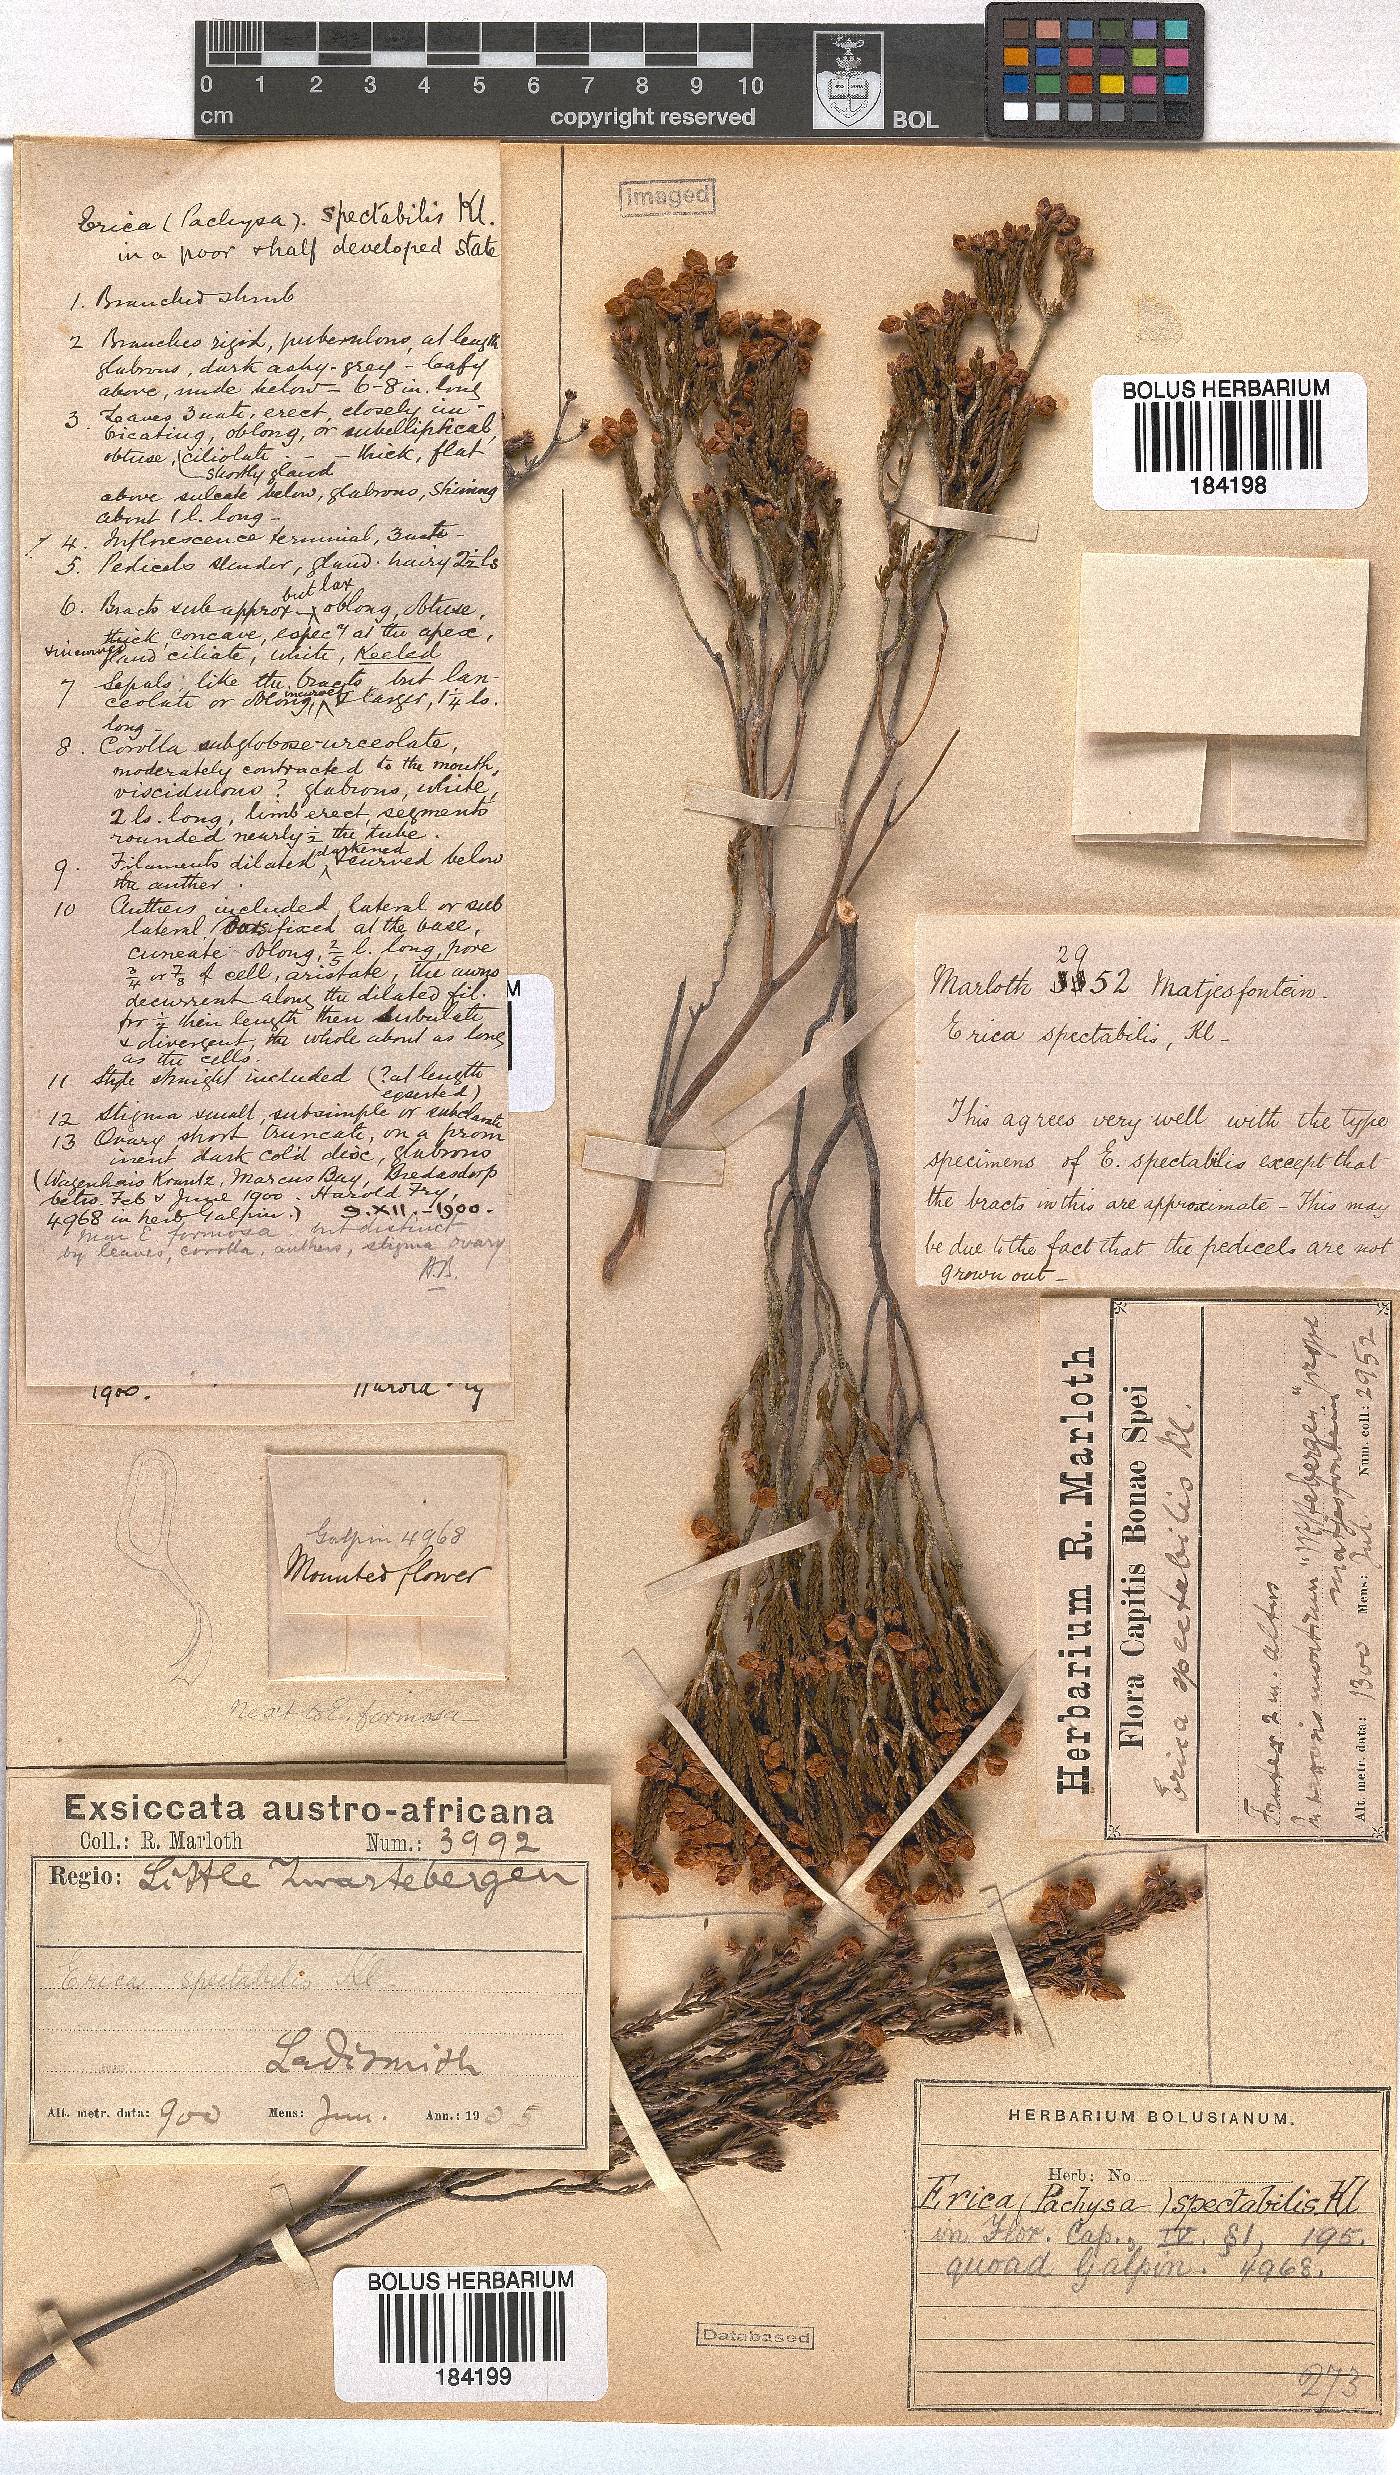 0 1 2 3 4 5 6 7 8 9 10
cm
copyright reserved
BOL
Imaged
Erica (Pachysa). spectabilis Kl.
in a poor & half developed state
1. Branched shrub
2 Branches rigid, puberulous, at length
glabrous, dark ashy-grey - leafy
above, nude below - 6-8 in. long
3. Leaves 3nate, erect, closely im-
bricating, oblong, or subelliptical,
obtuse, ciliolate - - - thick, flat
shortly gland
above sulcate below, glabrous, shining
about 1 l. long -
4. Inflorescence terminal, 3nate -
5. Pedicels slender, gland. hairy 2½ ls
6. Bracts sub approx - but lax oblong, obtuse,
thick, concave, espec^y at the apex,
& incurved gland ciliate, white, Keeled
7 Sepals like the bracts, but lan-
ceolate or oblong, incurved & larger, 1¼ ls.
long -
8. Corolla subglobose-urceolate,
moderately contracted to the mouth,
viscidulous? glabrous, white,
2 ls. long, limb erect, segments
rounded nearly ½ the tube.
9. Filaments dilated, darkened & curved below
the anther.
10 Anthers included, lateral or sub
lateral fixed at the base,
cuneate-oblong, ⅖ l. long, pore
¾ or ⅞ of cell, aristate, the awns
decurrent along the dilated fil.
for ½ their length then subulate
& divergent, the whole about as long
as the cells.
11 Style straight included (? at length
exserted)
12 Stigma small, subsimple or subclavate
13 Ovary short truncate, on a prom
inent dark col'd disc, glabrous
(Wagenhuis Krantz, Marcus Bay, Bredasdorp
betw. Feb & June 1900. Harold Fry,
4968 in herb Galpin.) 9.XII.-1900.
near E formosa but distinct
by leaves, corolla, anthers, stigma ovary
HB.
1900.
Harold Fry
Galpin 4968
Mounted flower
Next to E. formosa
BOLUS HERBARIUM
184198
M
29
Marloth 52 Matjesfontein -
Erica spectabilis, Kl -
This agrees very well with the type
specimens of E. spectabilis except that
the bracts in this are approximate - This may
be due to the fact that the pedicels are not
grown out -
Herbarium R. Marloth
Flora Capitis Bonae Spei
Erica spectabilis Kl.
Frutex 2 m. altus
In montium "Witteberge" prope
Matjesfontein
Alt. metr. data: 1300 Mens: Jul. Num. coll: 2952
Exsiccata austro-africana
Coll.: R. Marloth Num.: 3992
Regio: Little Zwartebergen
Erica spectabilis Kl
Ladismith
Alt. metr. data: 900 Mens: Jun. Ann.: 1905
BOLUS HERBARIUM
184199
Databased
HERBARIUM BOLUSIANUM.
Herb: No
Erica (Pachysa) spectabilis. Kl
in Flor. Cap., IV. §1, 195.
quoad Galpin. 4968.
273